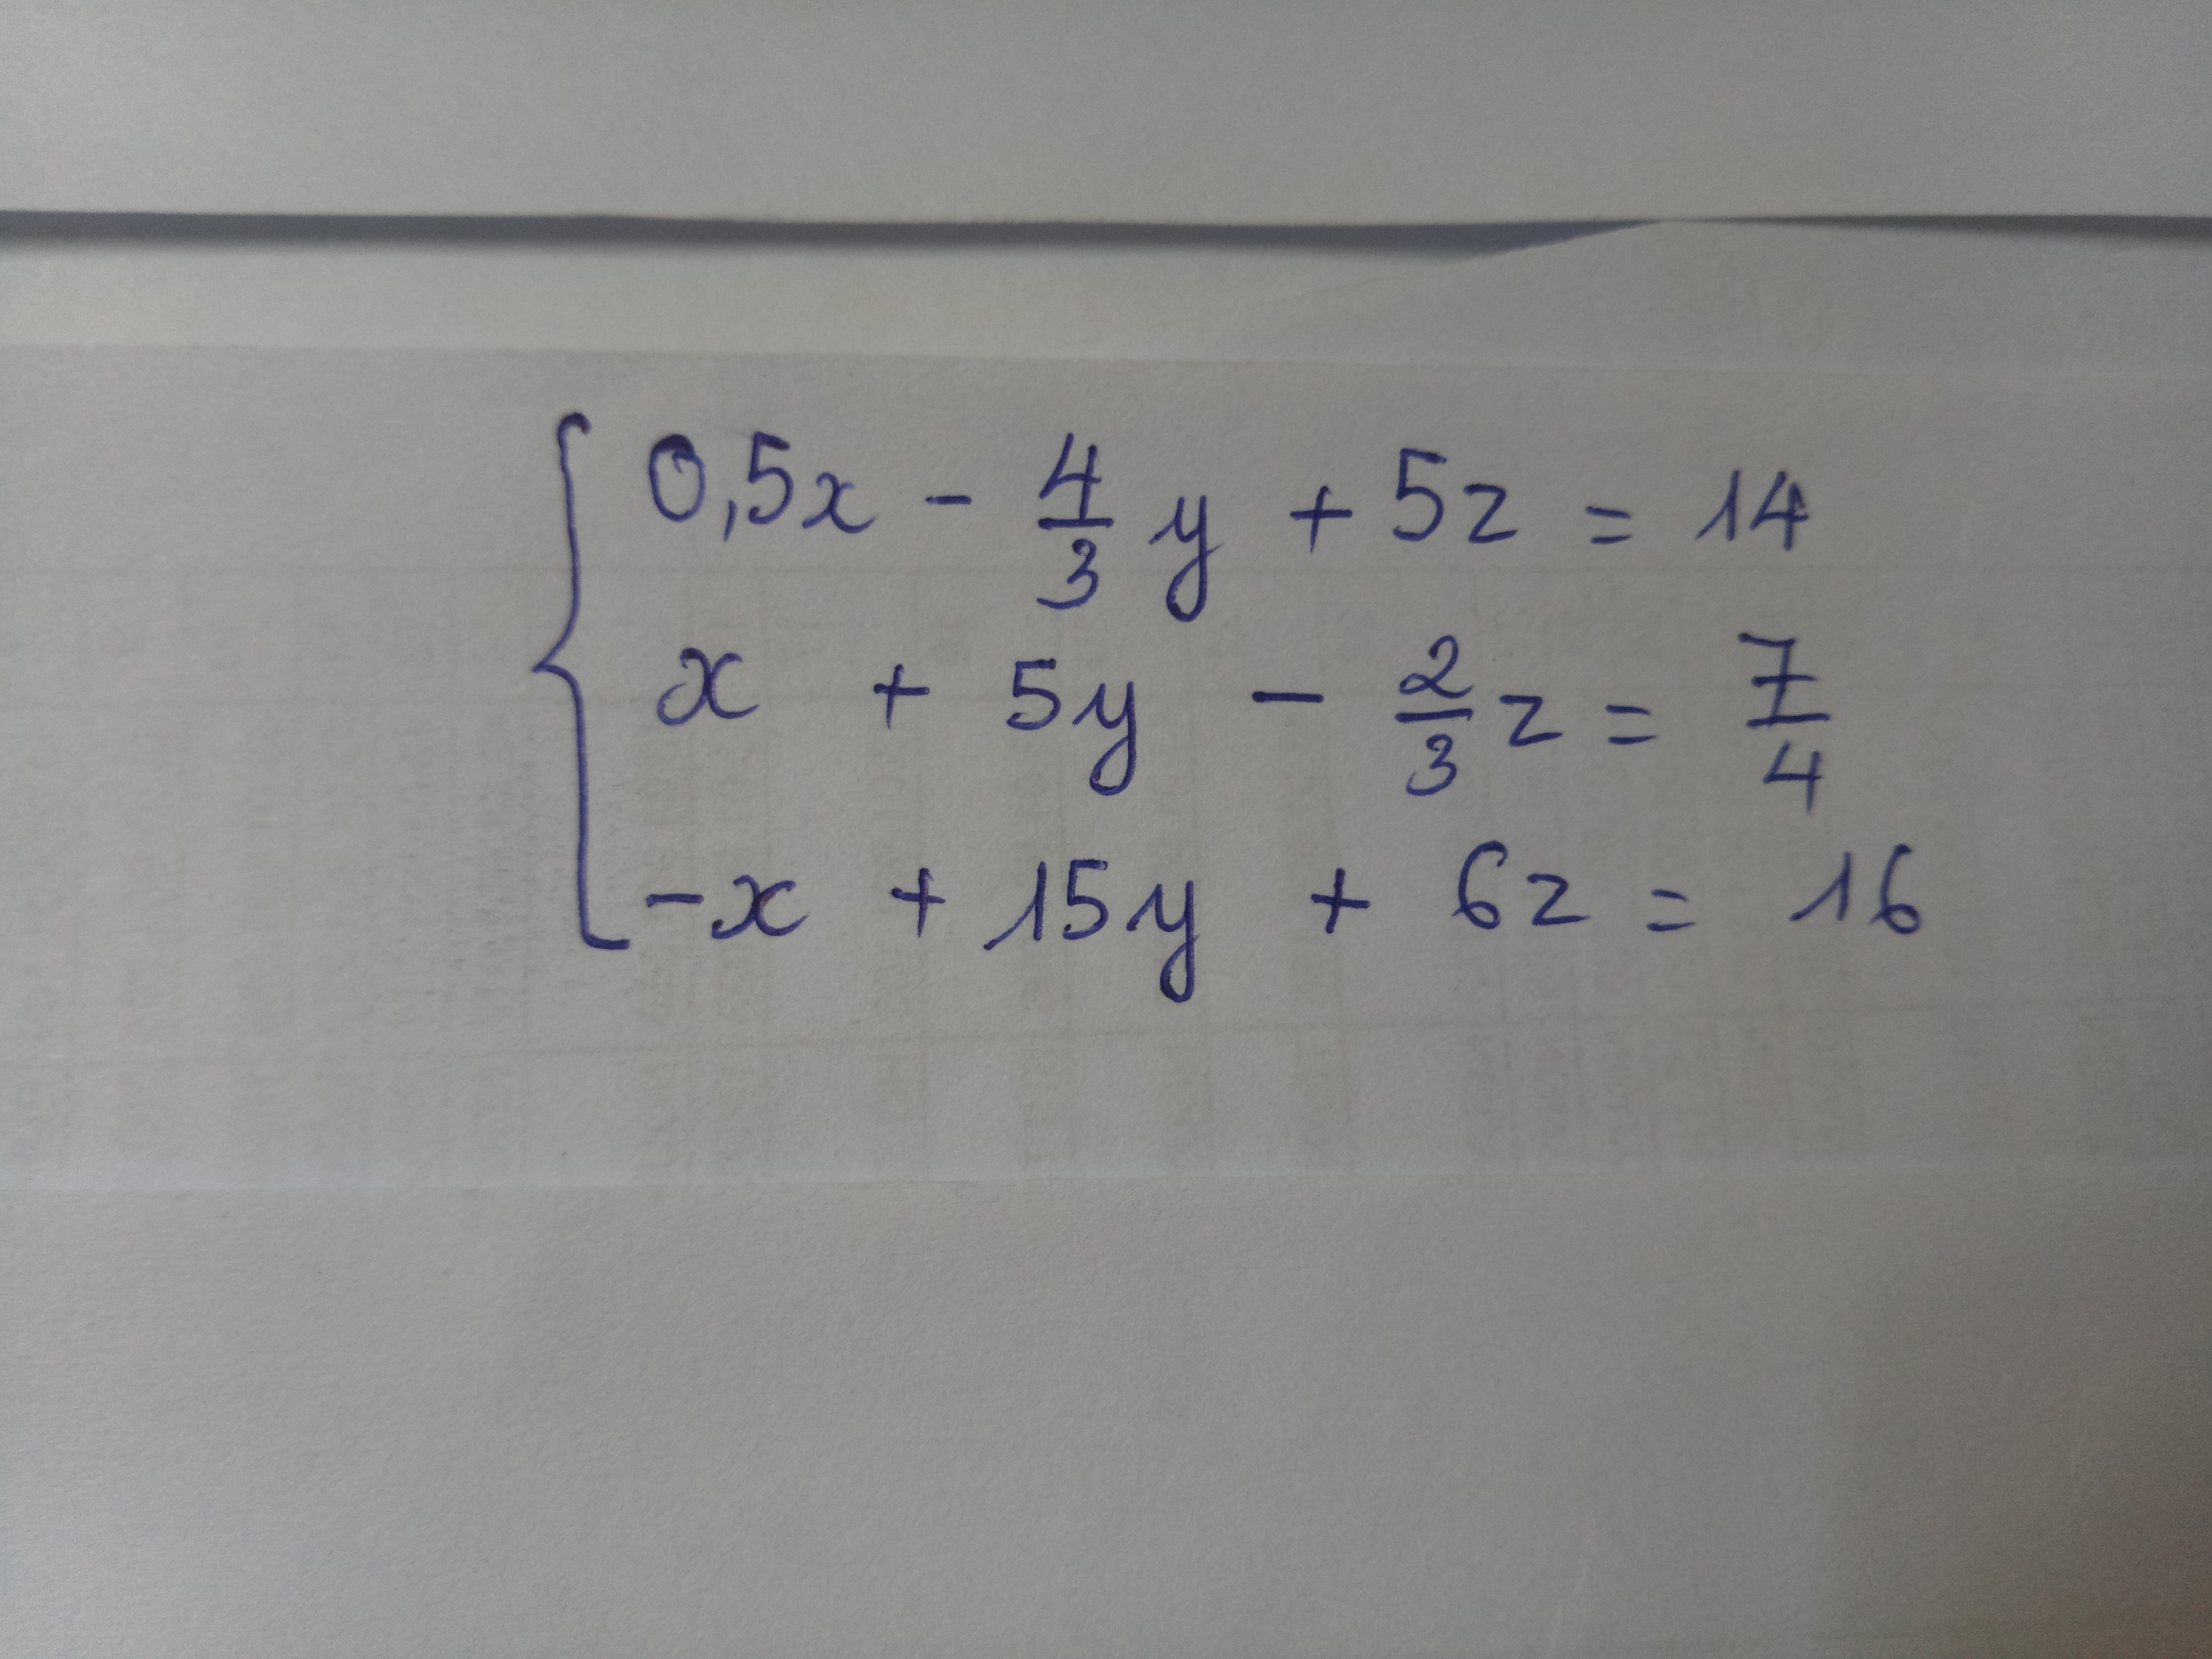 0,5x - 4/3 y + 5z = 14
x + 5y - 2/3 z = 7/4
-x + 15y + 6z = 16